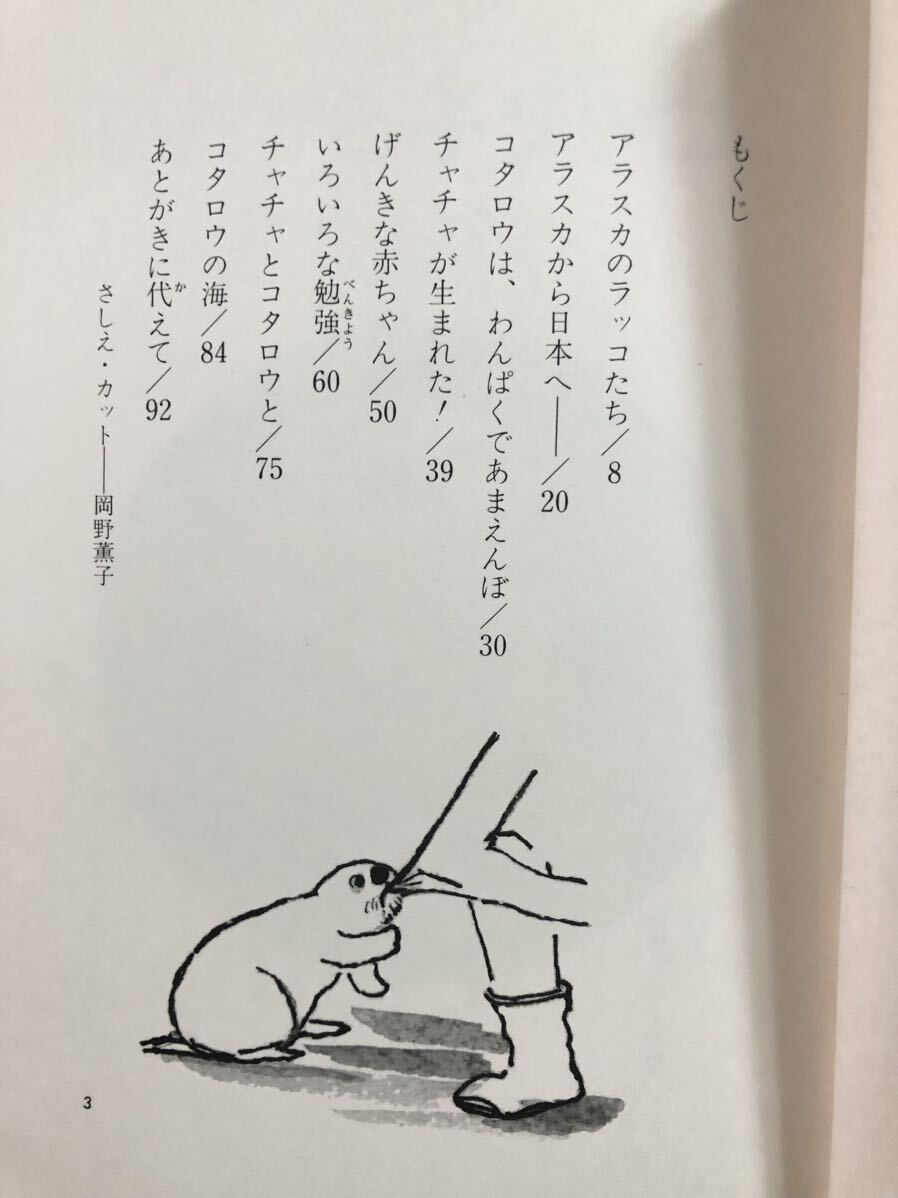 もくじ
アラスカのラッコたち／8
アラスカから日本へ――／20
コタロウは、わんぱくであまえんぼ／30
チャチャが生まれた！／39
げんきな赤ちゃん／50
いろいろな勉強／60
べんきょう
チャチャとコタロウと／75
コタロウの海／84
あとがきに代えて／92
か
さしえ・カット――岡野薫子
3